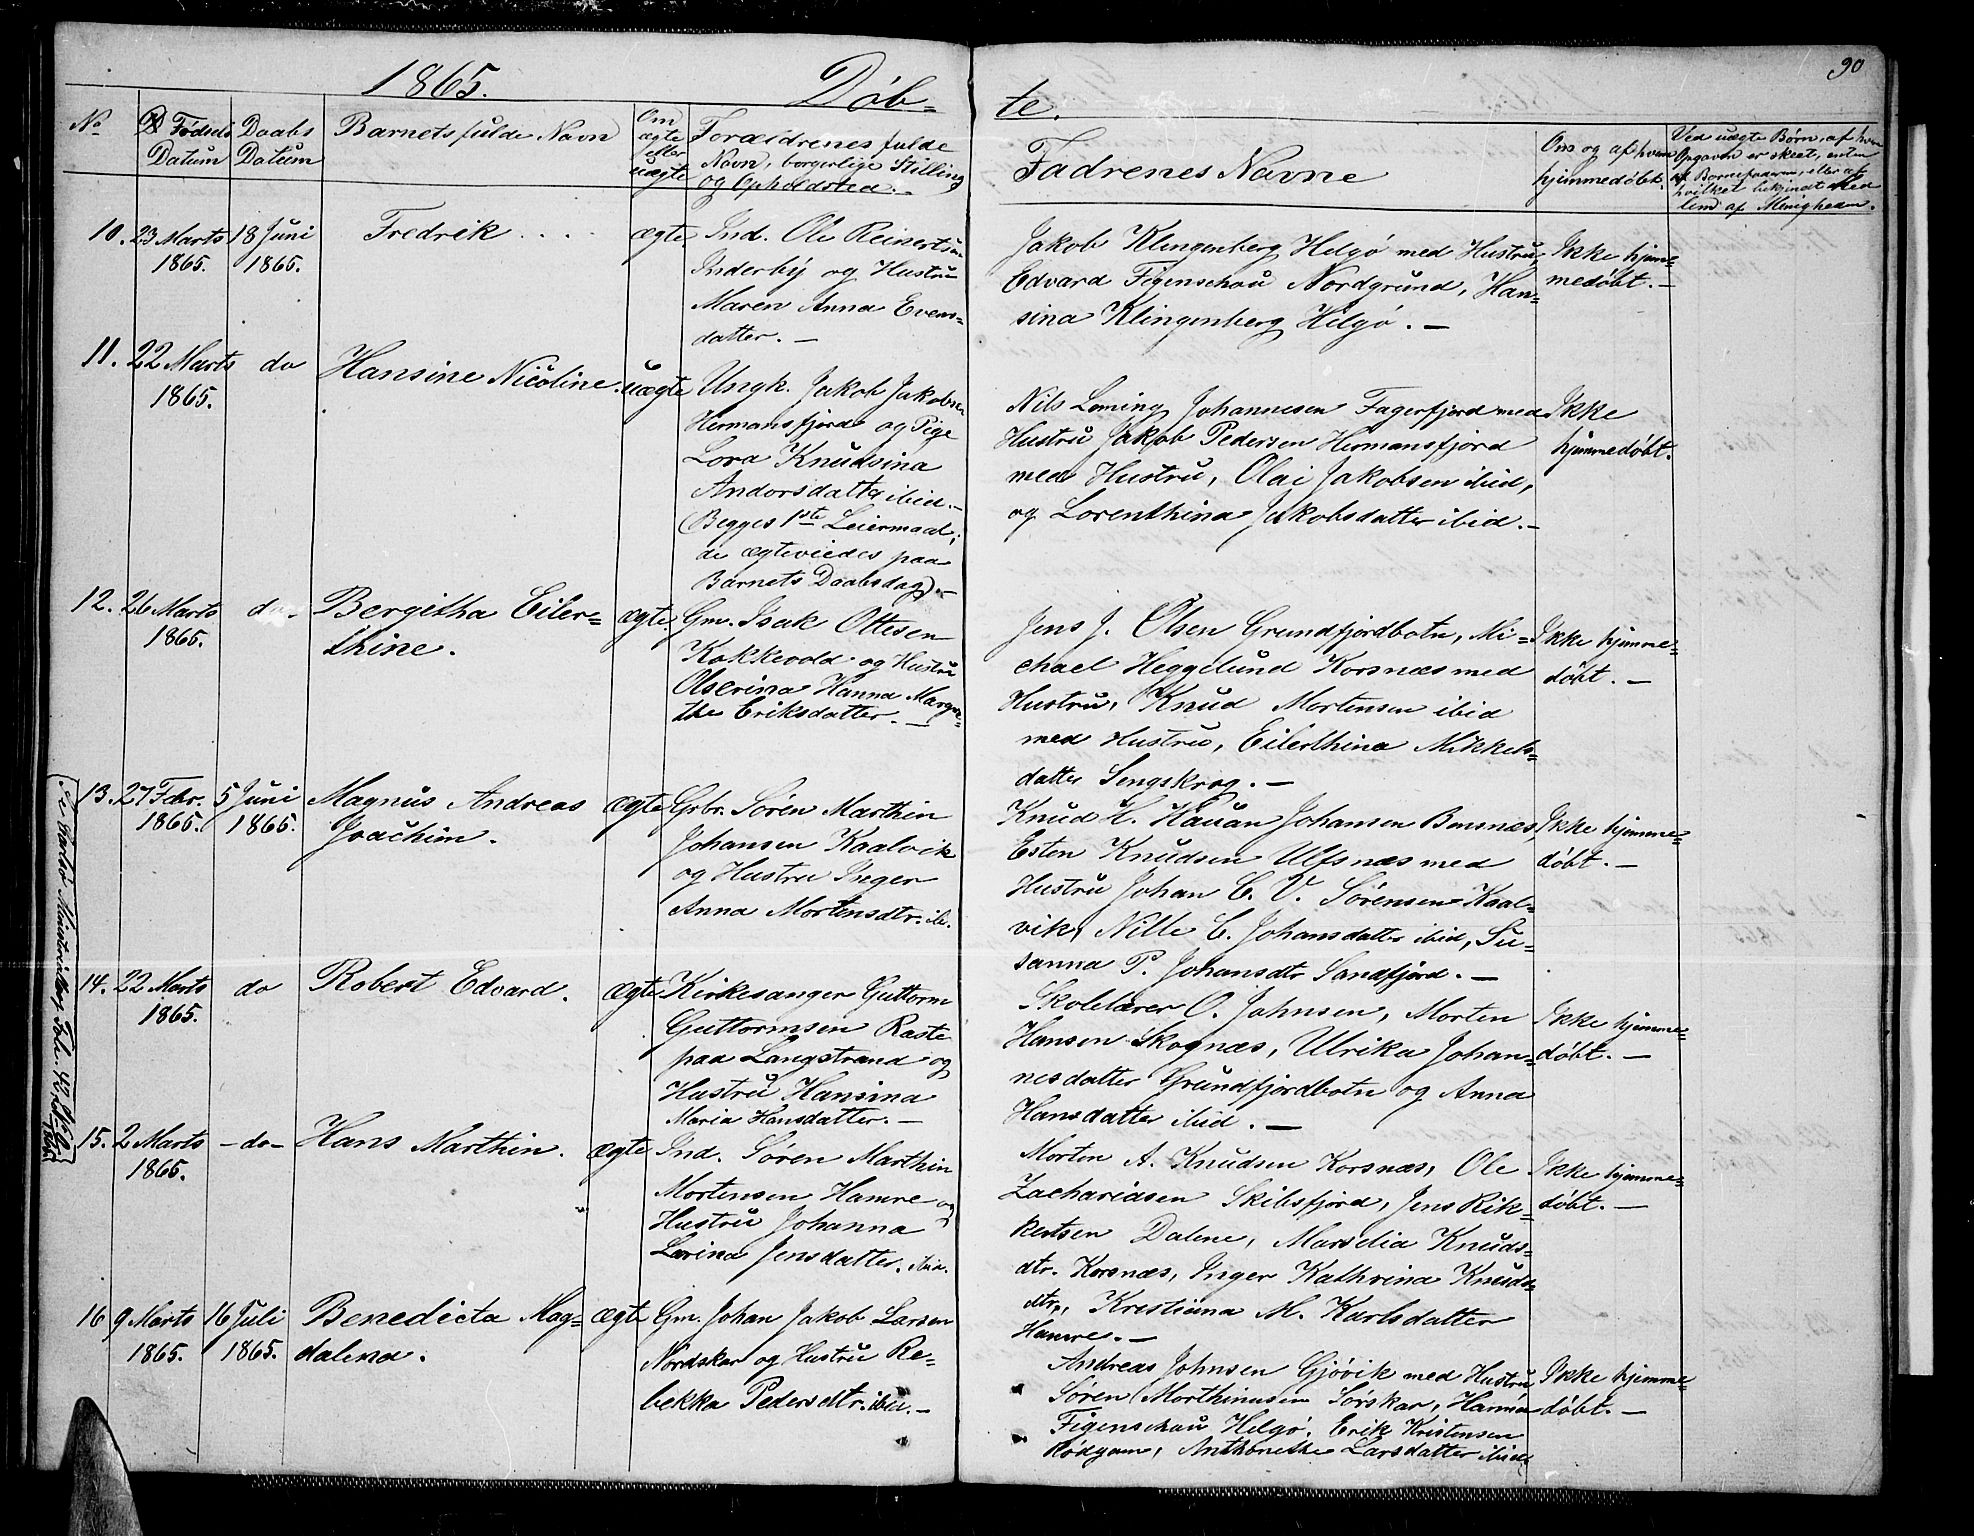 90
1865.
Døb-
te.
No
Fødsels
Datum
Daabs
Datum
Barnets fulde Navn
Om
ægte
eller
uægte
Forældrenes fulde
Navn, borgerlige Stilling
og Opholdsted.
Fadrenes Navne
Om og af hvem
hjemmedøbt.
Ved uægte Børn, af hvem
Opgaven er skeet, enten
af Barnefaderen, eller af
hvilket bekjendt Med
lem af Menigheden.
10. 23 Marts
1865.
18 Juni
1865.
Fredrik . . . .
ægte
Ind. Ole Reinertsen
Inderby og Hustru
Maren Anna Evens-
datter. —
Jakob Klingenberg Helgø med Hustru,
Edvard Figenschou Nordgrund, Han-
sina Klingenberg Helgø. —
Ikke hjem-
medøbt. —
11. 22 Marts
1865.
do
Hansine Nicoline.
uægte
Ungk. Jakob Jakobsen
Hermansfjord og Pige
Lova Knudsina
Andorsdatter ibid. —
(Begges 1ste Leiermaal;
de ægteviedes paa
Barnets Daabsdag). —
Nils Loming Johannesen Fagerfjord med
Hustru Jakob Pedersen Hermansfjord
med Hustru, Olai Jakobsen ibid,
og Lorenthina Jakobsdatter ibid. —
Ikke
hjemmedøbt.
12. 26 Marts
1865.
do.
Bergitha Eiler-
thine.
ægte.
Gm. Isak Ottesen
Kakkevold og Hustru
Olserina Hanna Margre-
the Eriksdatter. —
Jens J. Olsen Grundfjordbotn, Mi-
chael Heggelund Korsnæs med
Hustru, Knud Mortensen ibid
med Hustru, Eilerthina Mikkels-
datter Sengskrog. —
Ikke hjemme-
døbt. —
13. 27 Febr.
1865.
5 Juni
1865.
Magnus Andreas
Joachim.
ægte
Grbr. Søren Marthin
Johansen Kaalvik
og Hustru Inger
Anna Mortensdtr. ib.
Knud H. Hauan Johansen Bensnæs,
Esten Knudsen Ulfsnæs med
Hustru Johan C. V. Sørensen Kaal-
vik, Nille C. Johansdatter ibid, Su-
sanna P. Johansdtr Sandfjord. —
Ikke hjemme-
døbt. —
14. 22 Marts
1865.
do
Robert Edvard.
ægte
Kirkesanger Guttorm
Guttormsen Raste
paa Langstrand og
Hustru Hansina
Maria Hansdatter. —
Skolelærer O. Johnsen, Morten
Hansen Skognæs, Ulrika Johan-
nesdatter Grundfjordbotn og Anna
Hansdatter ibid. —
Ikke hjemme-
døbt. —
15. 2 Marts
1865.
— do —
Hans Marthin.
ægte
Ind. Søren Marthin
Mortensen Hamre og
Hustru Johanna
Lovina Jensdatter. ibid.
Morten A. Knudsen Korsnæs, Ole
Zachariasen Skibsfjord, Jens Rik-
kertsen Dalene, Marselia Knuds-
dtr. Korsnæs, Inger Kathrina Knuds-
dtr., Kristiana M. Karlsdatter
Hamre. —
Ikke hjemme-
døbt. —
16 9 Marts
1865.
16 Juli
1865.
Benedicta Mag-
dalena.
ægte
Gm. Johan Jakob Larsen
Nordskar og Hustru Re-
bekka Pedersdtr. ibid. —
Andreas Johnsen Gjøvik med Hustru
Søren Morthinusen Sørskar, Hanna
Figenschau Helgø, Erik Kristensen
Anthonethe Larsdatter ibid
Ikke hjemme-
døbt. —